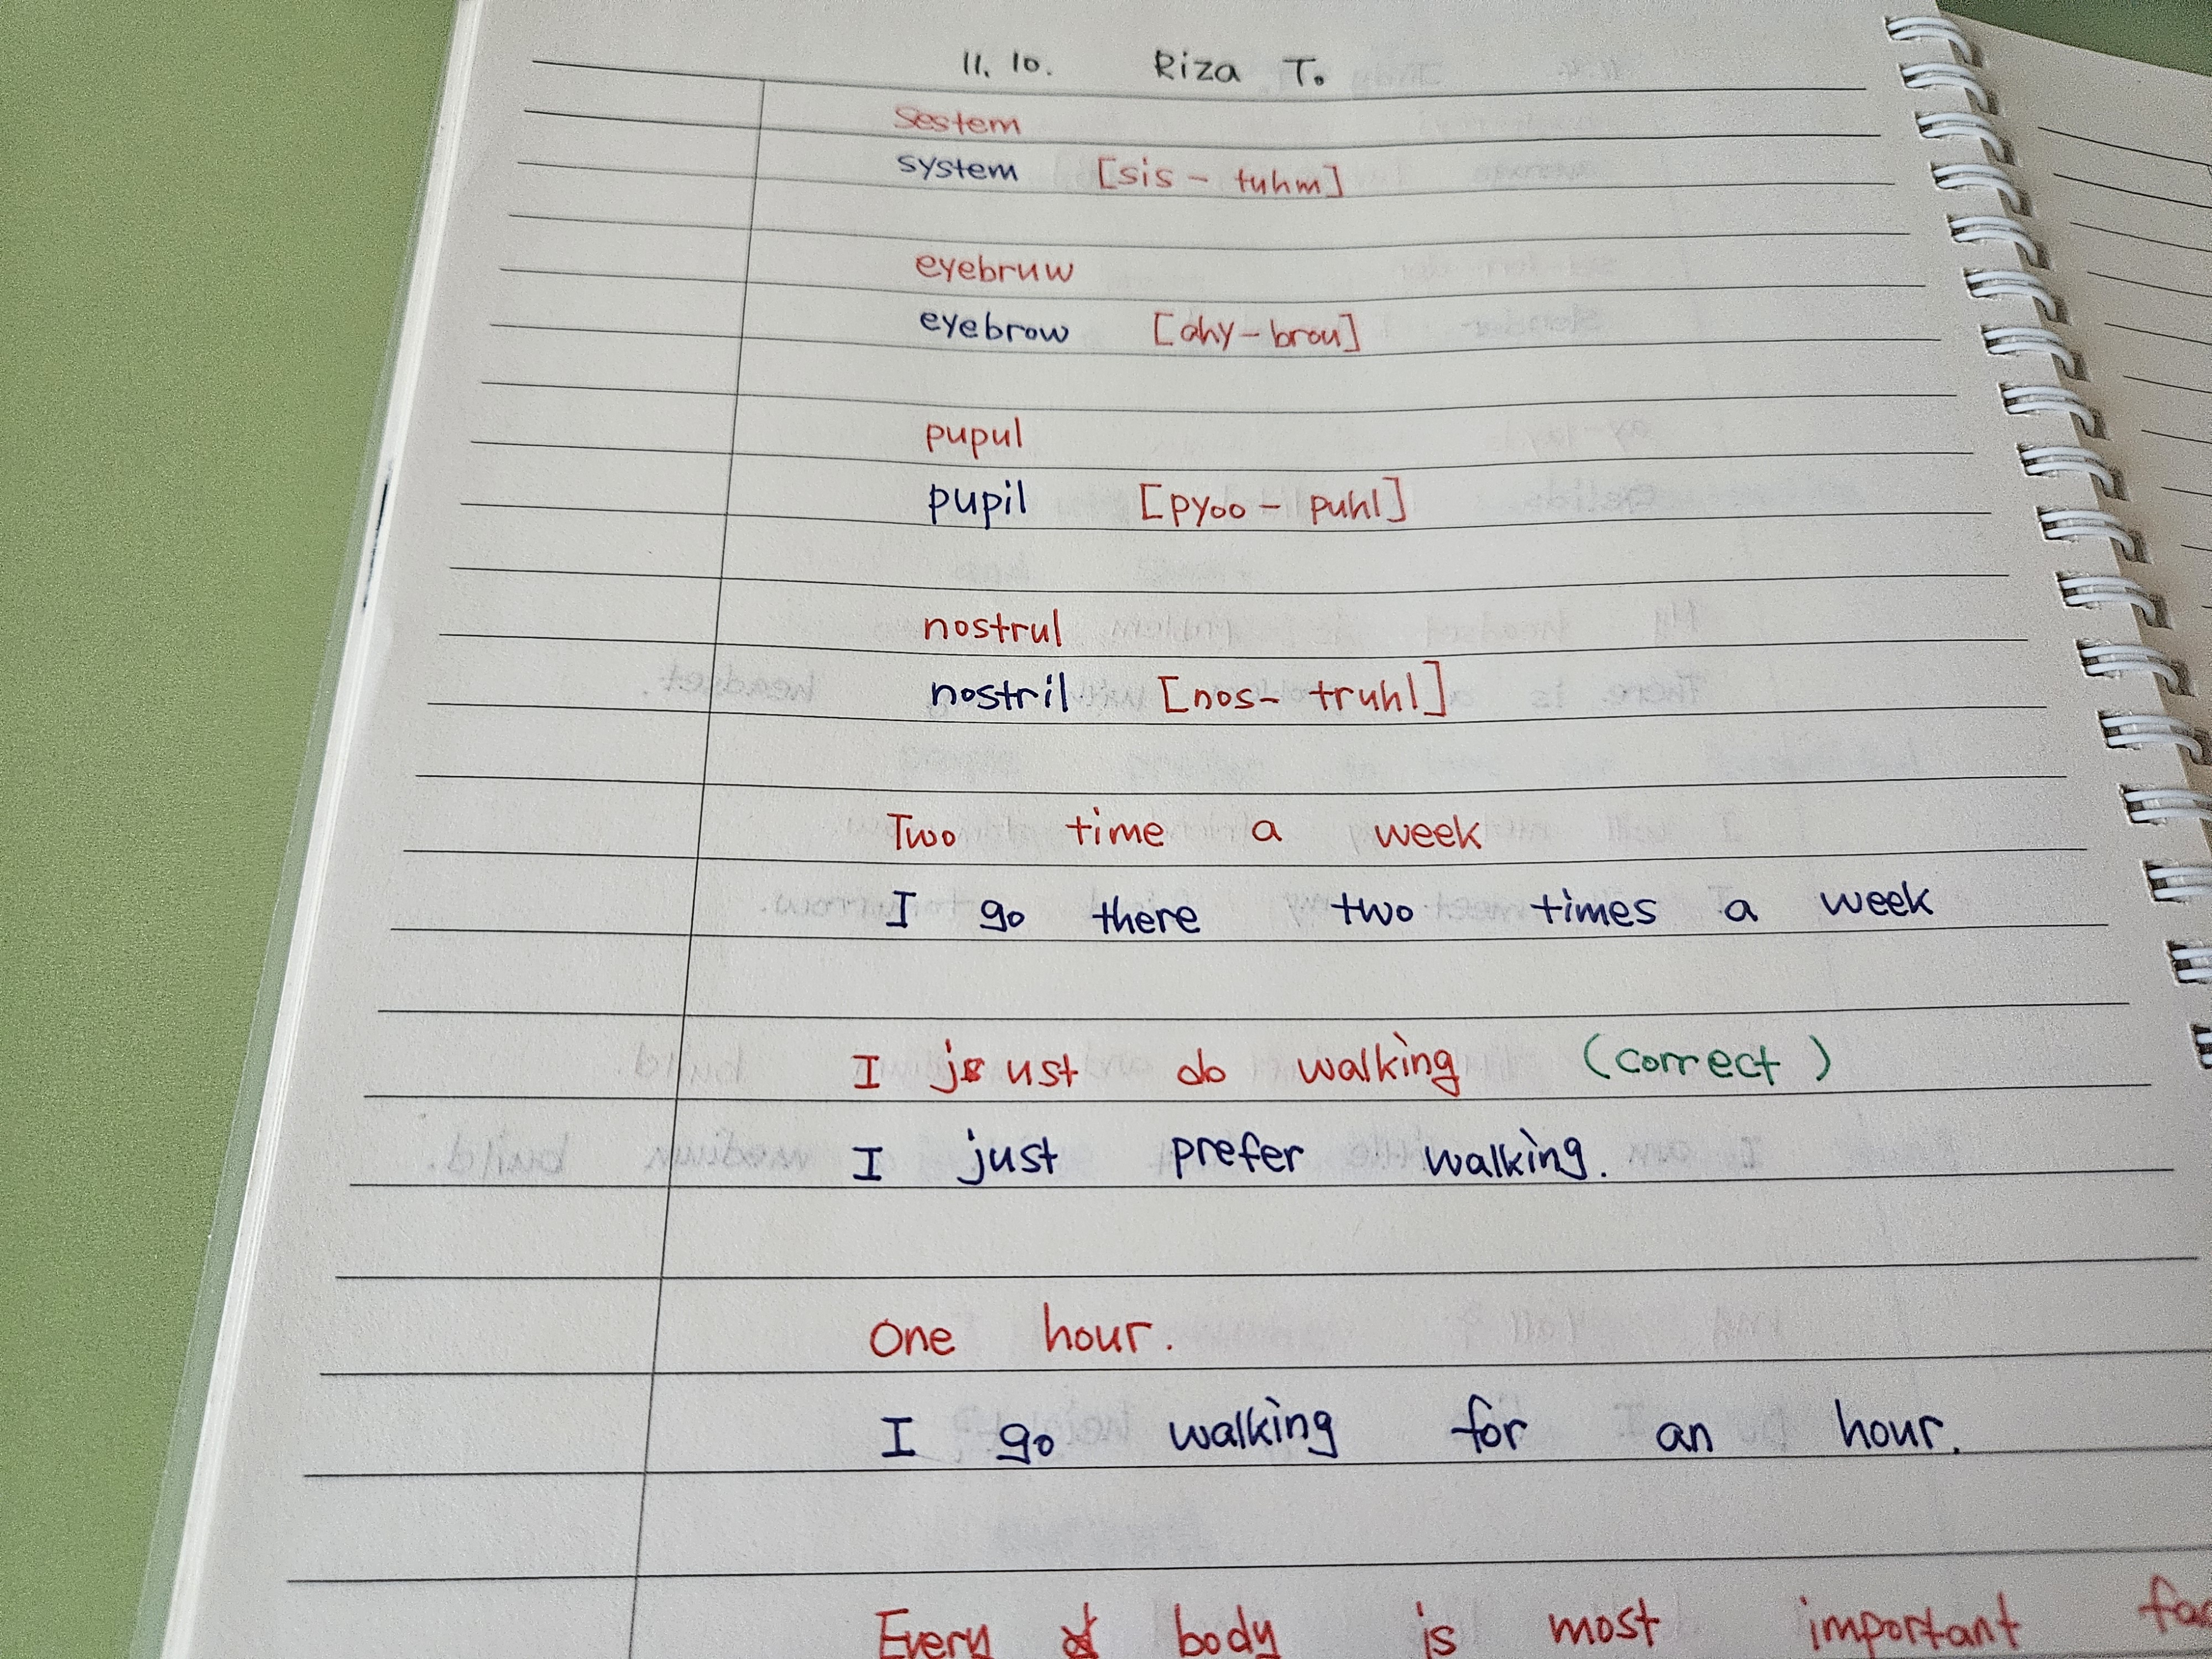 11. 10. Riza T.
Sestem
system [sis - tuhm]
eyebruw
eyebrow [ahy - brou]
pupul
pupil [pyoo - puhl]
nostrul
nostril [nos- truhl]
Two time a week
I go there two times a week
I just do walking (correct)
I just prefer walking.
One hour.
I go walking for an hour.
Every body is most important